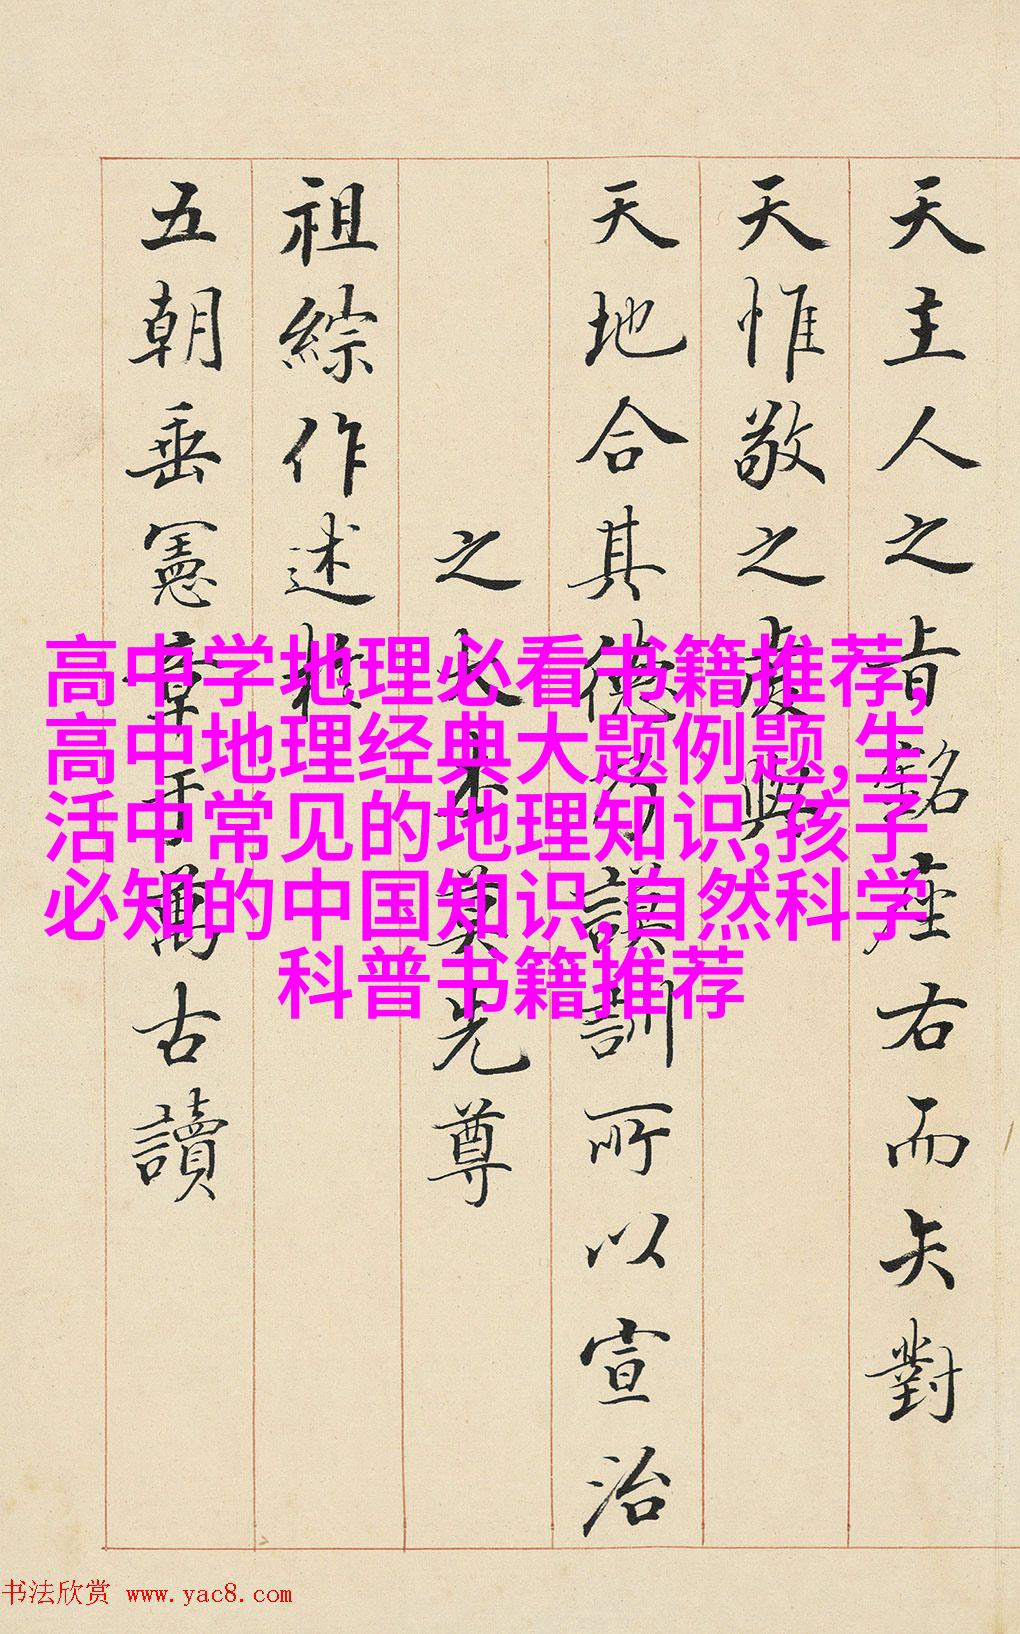 高中学地理必看书籍推荐,
高中地理经典大题例题,生
活中常见的地理知识,孩子
必知的中国知识,自然科学
科普书籍推荐
天主人之旨銘座右而矢對
天惟敬之虔與
天地合其德乃謨訓所以宣治
之大本莫先尊
祖綜作述
五朝垂憲章于萬古讀
书法欣赏 www.yac8.com